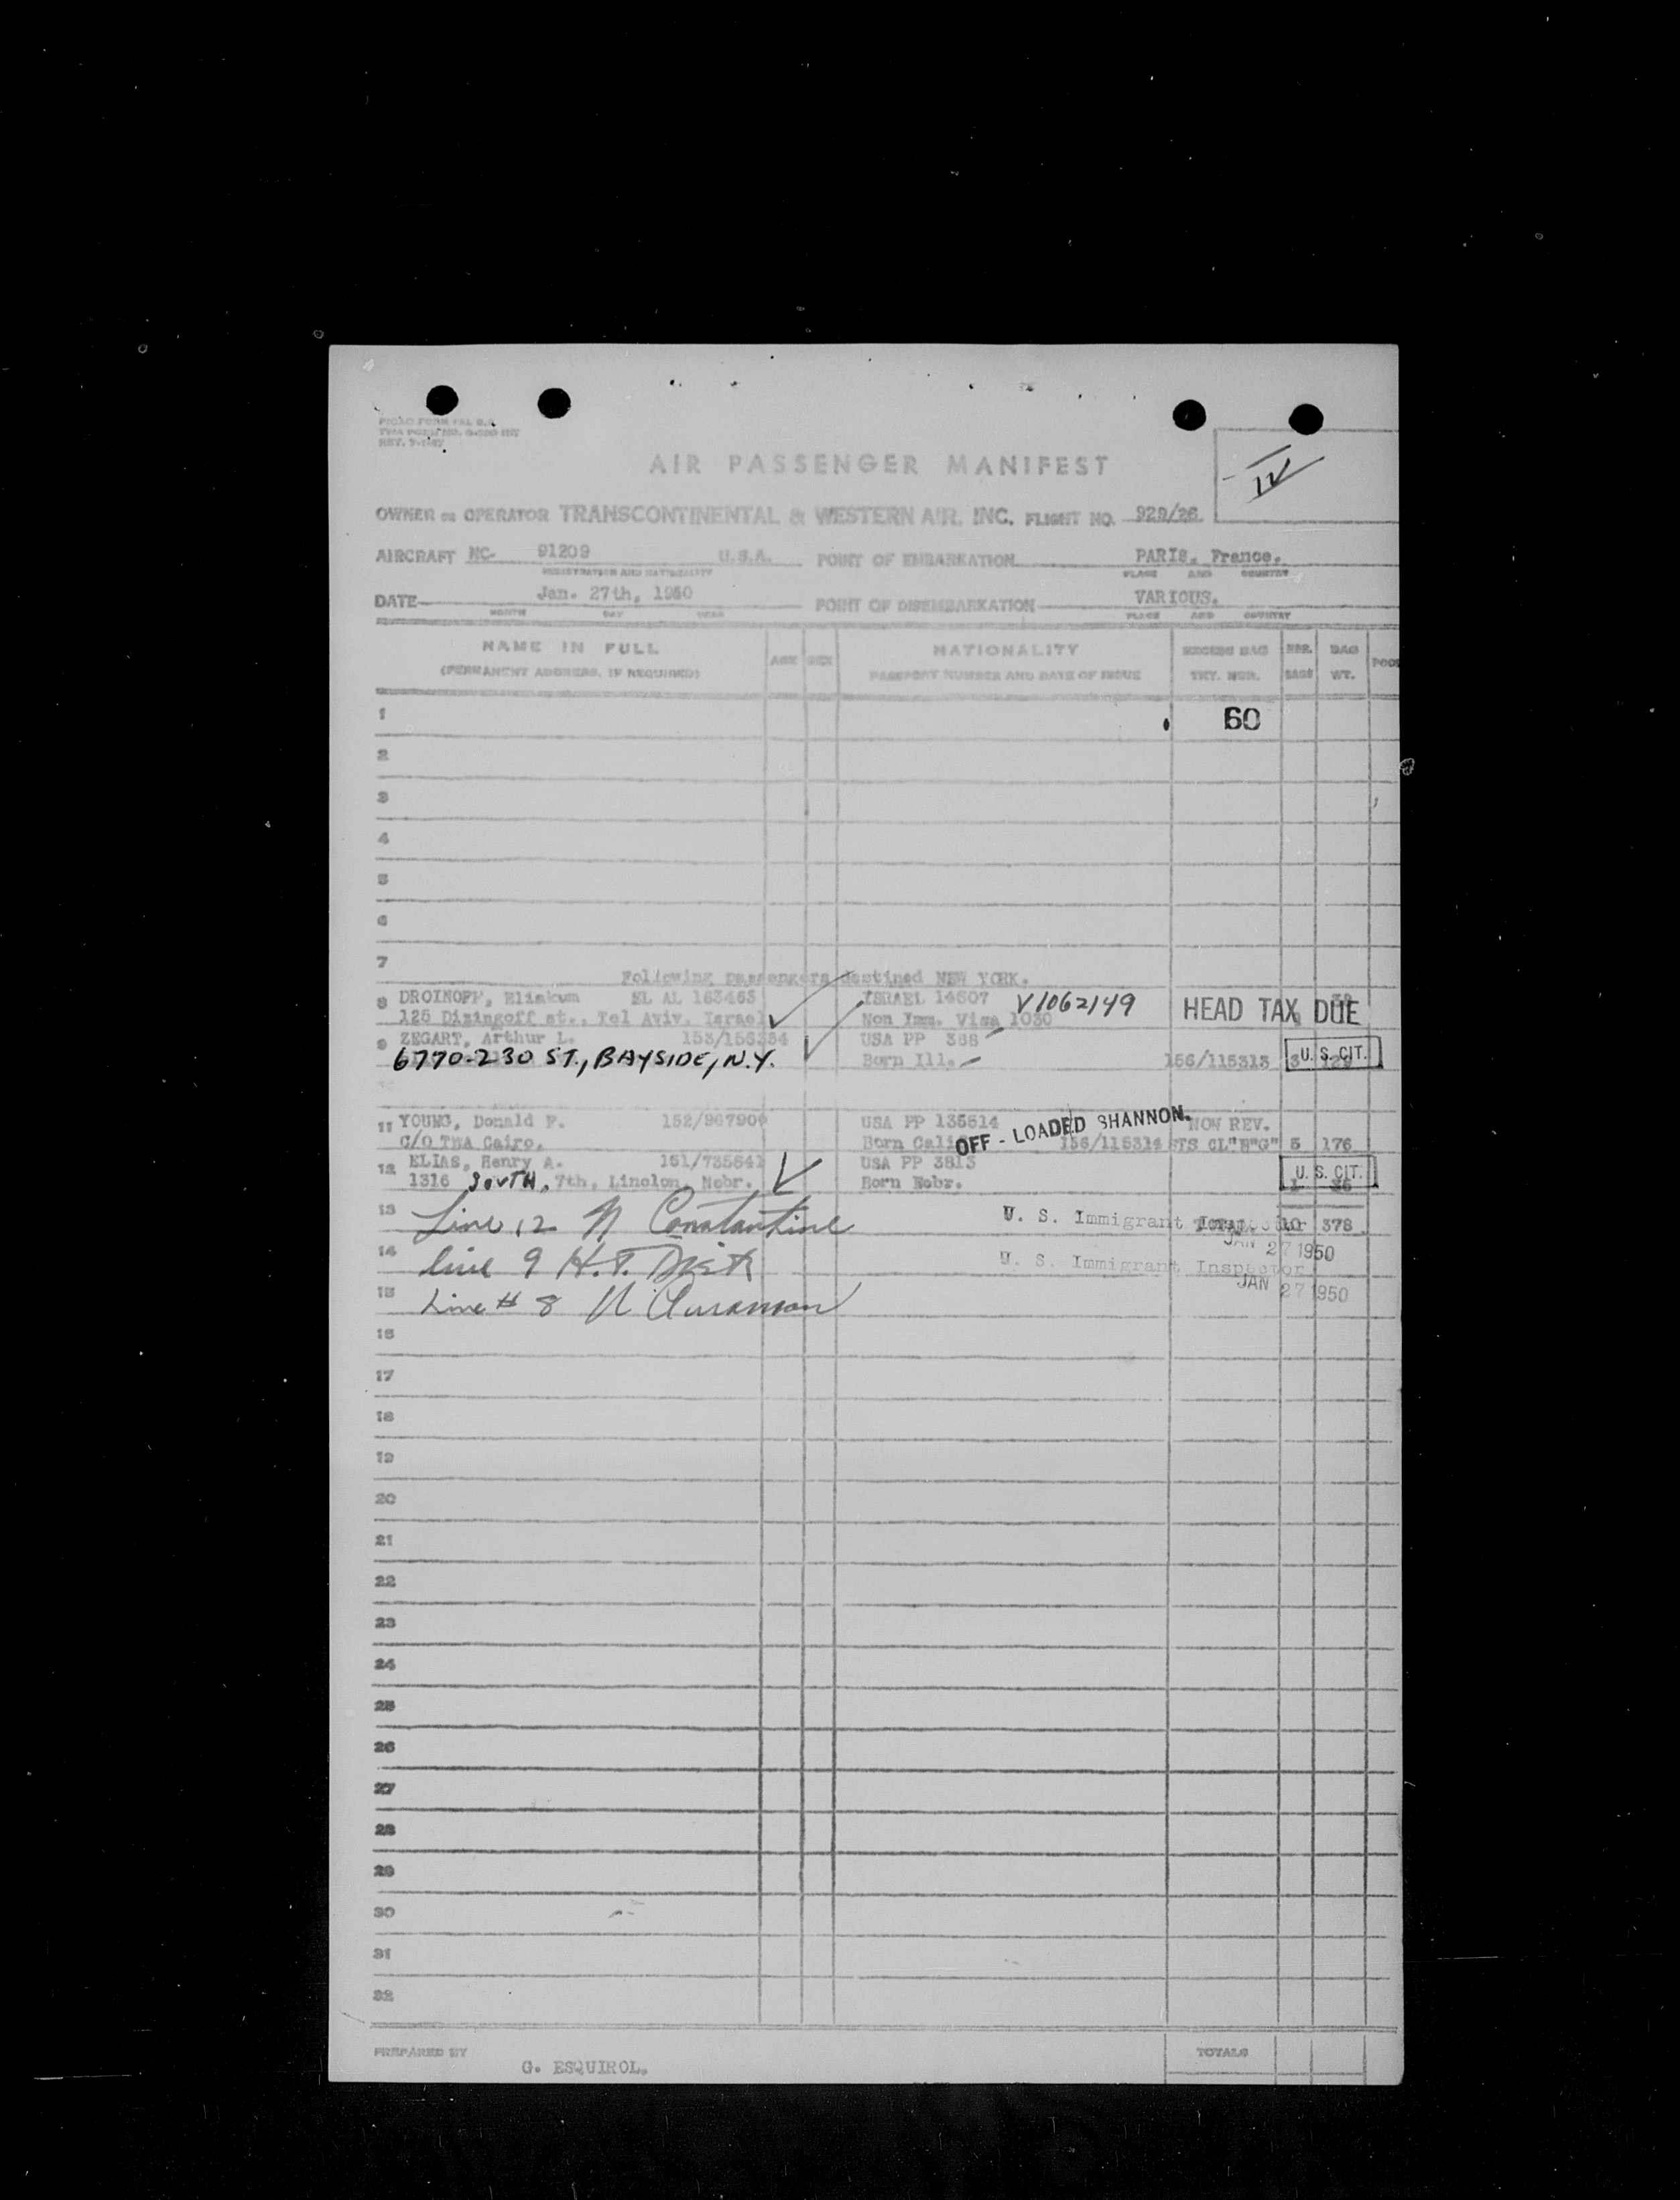 AIR PASSENGER MANIFEST
IV
OWNER OR OPERATOR TRANSCONTINENTAL & WESTERN AIR, INC. FLIGHT NO. 929/26
AIRCRAFT NC- 91209 U.S.A. POINT OF EMBARKATION PARIS, France.
REGISTRATION AND NATIONALITY PLACE AND COUNTRY
DATE Jan. 27th, 1950 POINT OF DISEMBARKATION VARIOUS.
MONTH DAY YEAR PLACE AND COUNTRY
NAME IN FULL AGE SEX NATIONALITY EXCESS BAG NBR. BAG
(PERMANENT ADDRESS, IF REQUIRED) PASSPORT NUMBER AND DATE OF ISSUE TKT. NBR. BAGS WT.
1 60
2
3
4
5
6
7
Following passengers destined NEW YORK.
8 DROINOFF, Eliakum EL AL 163463 ISRAEL 14607 V1062149 HEAD TAX DUE
125 Dizingoff st., Tel Aviv, Israel Non Imm. Visa 1030
9 ZEGART, Arthur L. USA PP 368
6770-230 ST., BAYSIDE, N.Y. Born Ill. 156/115313 3 U. S. CIT.
11 YOUNG, Donald F. USA PP 135614 NON REV.
C/O TWA Cairo. Born Cali OFF - LOADED SHANNON. 156/115314 STS CL"B"G" 5 176
12 ELIAS, Henry A. USA PP 3813
1316 SOUTH, 7th, Lincoln, Nebr. Born Nebr. U. S. CIT.
13 Line 12 N Constantine U. S. Immigrant Inspector TOTAL 10 378
JAN 27 1950
14 line 9 H.T. U. S. Immigrant Inspector
JAN 27 1950
15 Line # 8
16
17
18
19
20
21
22
23
24
25
26
27
28
29
30
31
32
PREPARED BY G. ESQUIROL. TOTALS